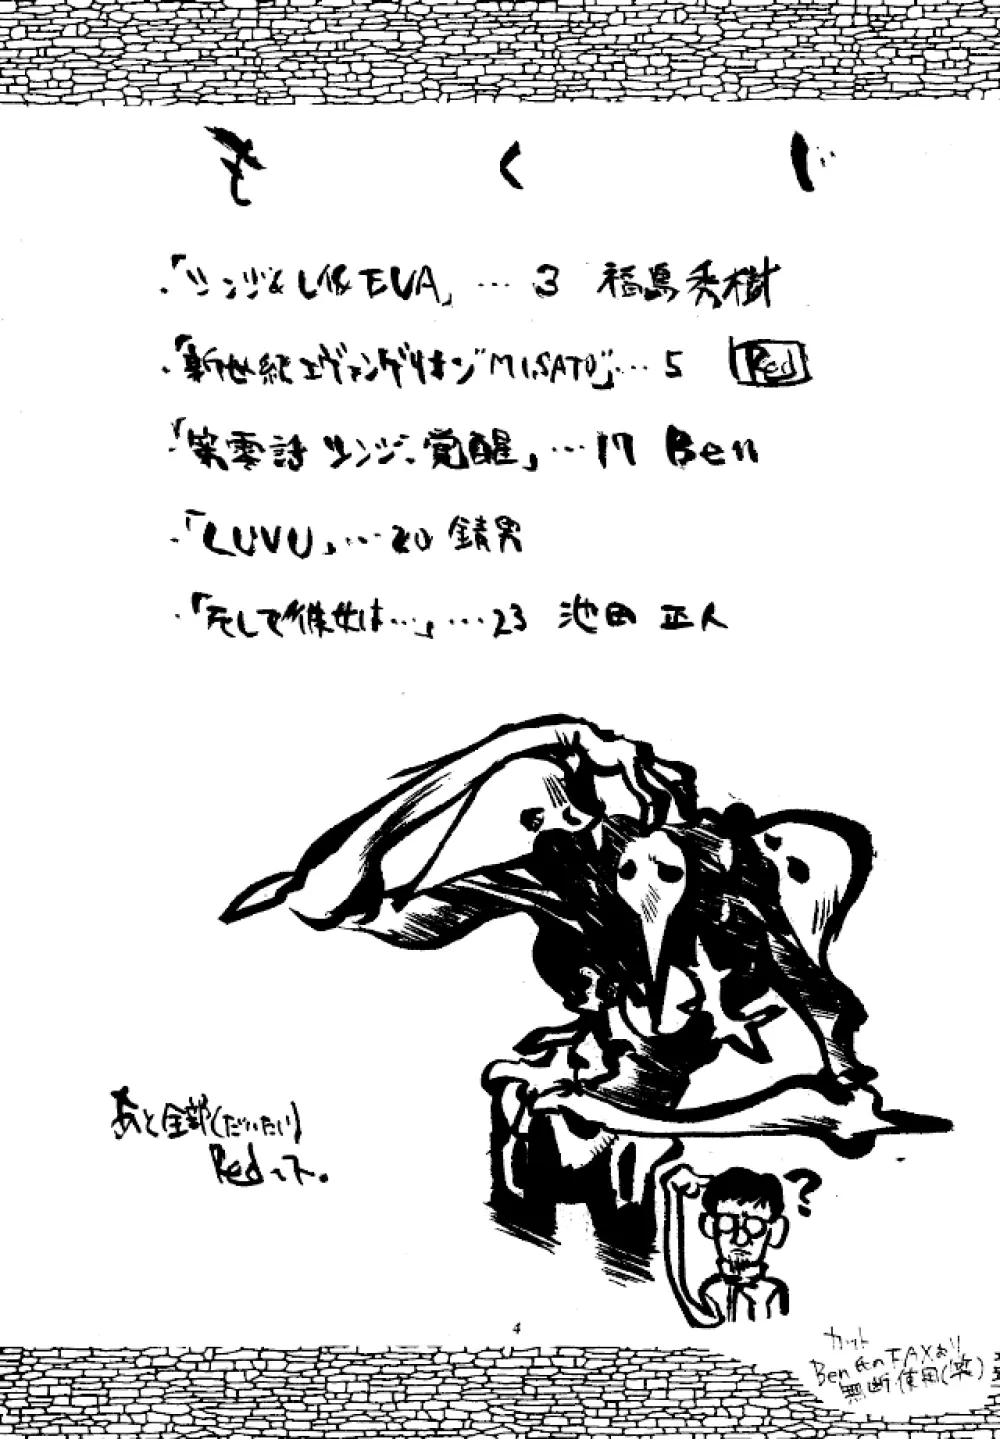 もくじ
・「シンジ&レイ&EVA」…3 福島秀樹
・「新世紀エヴァンゲリオン"MISATO"」…5 Red
・「第零話 シンジ、覚醒」…17 Ben
・「LUVU」…20 錆男
・「そして彼女は…」…23 池田正人
あと全部(だいたい)
Redっス。
?
4
カット
Ben氏のFAXより
無断使用(笑)